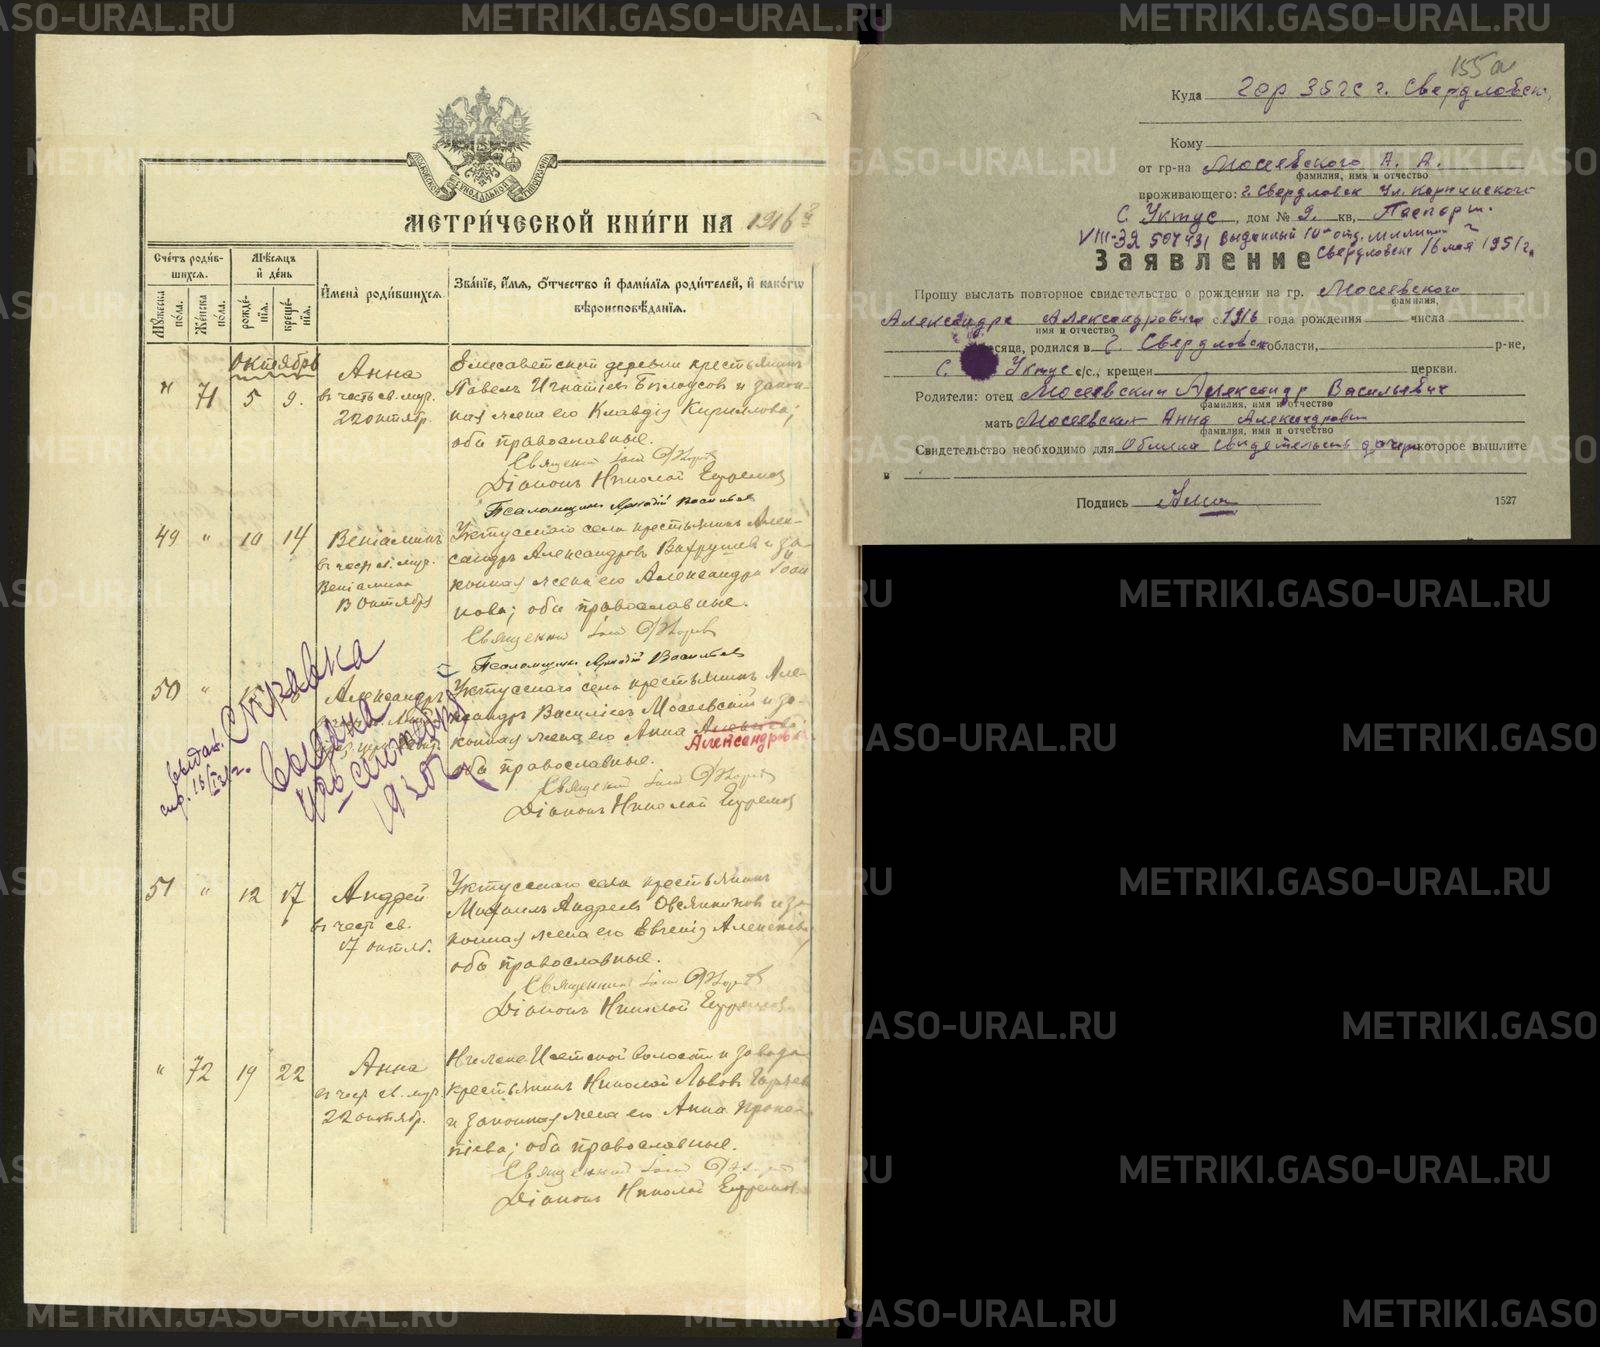 МЕТРИЧЕСКОЙ КНИГИ НА 1916 г
Счетъ родив-
шихся.
Мѣсяцъ
и день
Мужеска
пола.
Женска
пола.
рожде-
нія.
креще-
нія.
Имена родившихся.
Званіе, имя, отчество и фамилія родителей, и какого
вѣроисповѣданія.
Октябрь
71
5
9.
Анна
въ честь св. муч.
22 октябр.
Елисаветской деревни крестьянинъ
Павелъ Игнатіевъ Бѣлоусовъ и закон-
ная жена его Клавдія Кириллова;
оба православные.
Священникъ
Діаконъ Николай Ефремов
Псаломщикъ Аркадій Васильев
49
"
10
14
Веніаминъ
въ честь св. муч.
Веніамина
13 октября
Уктусскаго села крестьянинъ Алек-
сандръ Александровъ Вахрушев и за-
конная жена его Александра Іоан
нова; оба православные.
Священник
Псаломщикъ Аркадій Васильев
50
"
Александръ
Уктусскаго села крестьянинъ Але-
ксандръ Василіевъ Мосеевскій и за-
конная жена его Анна
Александрова
оба православные.
Священник
Діаконъ Николай Ефремов
Справка
выдана
1930 г.
выдан.
спр. 15/
51
"
12
17
Андрей
въ честь св.
17 октяб.
Уктусскаго села крестьянинъ
Михаилъ Андреев Овсянников и за-
конная жена его Евгенія Алексѣева
оба православные.
Священникъ
Діаконъ Николай Ефремов
"
72
19
22
Анна
въ честь св. муч.
22 октябр.
Нижне-Исетской волости и завода
крестьянинъ Николай Львовъ
и законная жена его Анна Проко-
піева; оба православные.
Священникъ
Діаконъ Николай Ефремов
155а
Куда Гор ЗАГС г. Свердловск,
Кому
от гр-на Мосеевского А. А.
фамилия, имя и отчество
проживающего: г. Свердловск ул.
С. Уктус, дом № 9. кв, Паспорт.
VIII-ЗЯ 507431 выданный 10ым отд. милиции г
Свердловск 16 мая 1951 г.
Заявление
Прошу выслать повторное свидетельство о рождении на гр. Мосеевского
фамилия,
Александра Александровича с 1916 года рождения числа
имя и отчество
месяца, родился в г. Свердловск области, р-не,
С. Уктус с/с., крещен церкви.
Родители: отец Мосеевский Александр Васильевич
фамилия, имя и отчество
мать Мосеевская Анна Александровн
фамилия, имя и отчество
Свидетельство необходимо для обмена свидетельств дочери которое вышлите
в
Подпись
1527
METRIKI.GASO-URAL.RU